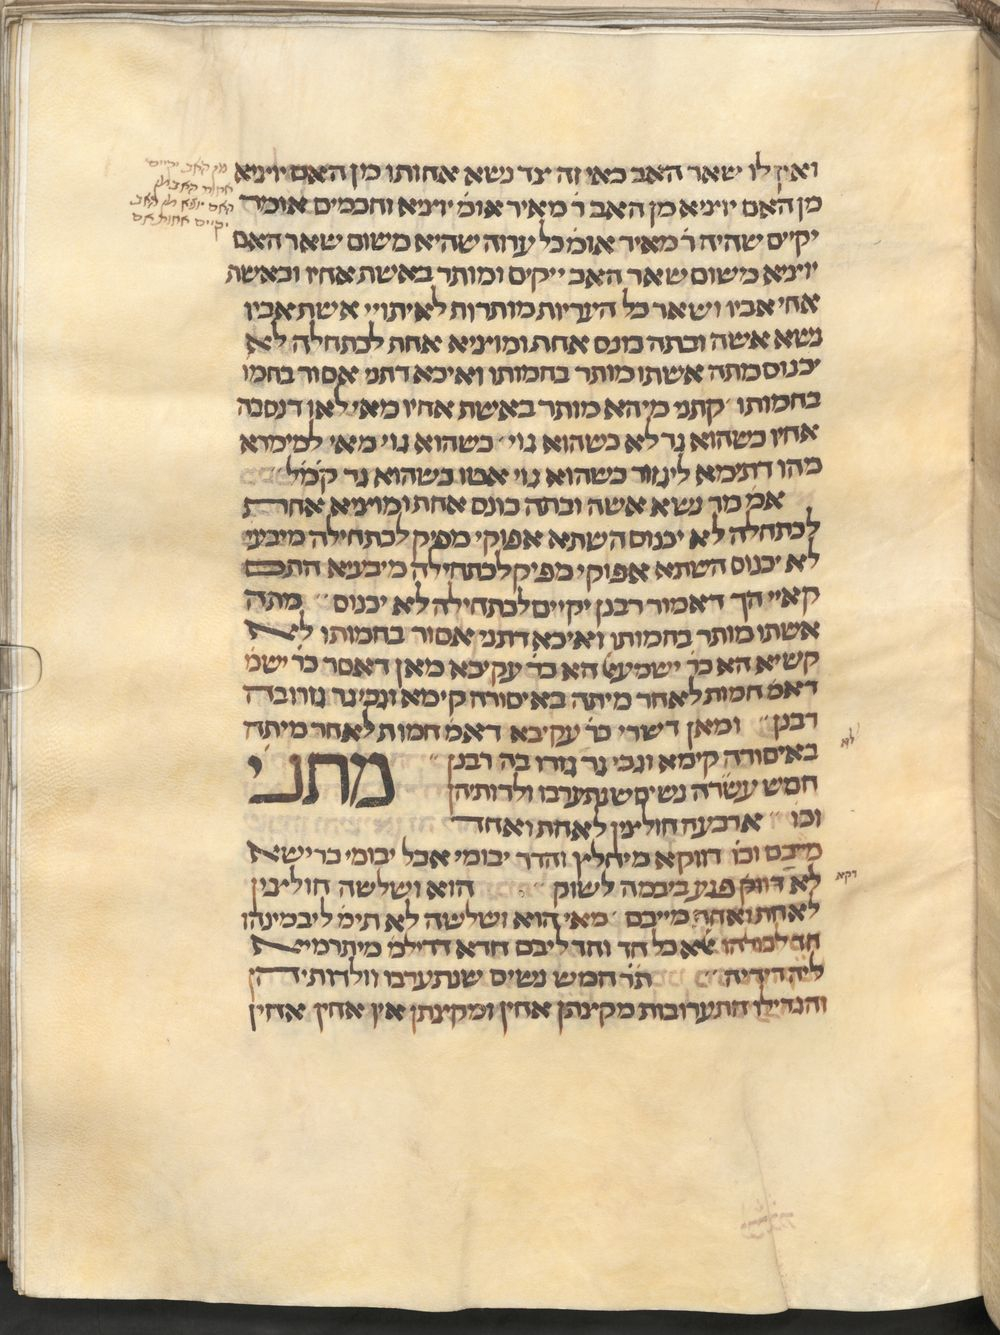 ואין לו שאר האב כאי זה צד נשא אחותו מן האם יוציא
מן האם יוציא מן האב ר׳ מאיר אומ׳ יוציא וחכמים אומר׳
יקיים שהיה ר׳ מאיר אומ׳ כל ערוה שהיא משום שאר האם
יוציא משום שאר האב יקיים ומותר באשת אחיו ובאשת
אחי אביו ושאר כל העריות מותרות לאיתויי אשת אביו
נשא אשה ובתה כונס אחת ומוציא אחת לכתחלה לא
יכנוס מתה אשתו מותר בחמותו ואיכא דתני אסור בחמו
בחמותו קתני מיהא מותר באשת אחיו מאי לאו דנסבה
אחיו כשהוא גר לא כשהוא גוי כשהוא גוי מאי למימרא
מהו דתימא ליגזור כשהוא גוי אטו כשהוא גר ק׳מ׳ל׳
אמ׳ מר נשא אשה ובתה כונס אחת ומוציא אחרת
לכתחלה לא יכנוס השתא אפוקי מפיק לכתחילה מיבעי
לא יכנוס השתא אפוקי מפיק לכתחילה מיבעיא התם
קאיי הך דאמור רבנן יקיים לכתחילה לא יכנוס מתה
אשתו מותר בחמותו ואיכא דתני אסור בחמותו לא
קשיא הא כר׳ ישמעאל הא כר׳ עקיבא מאן דאסר כר׳ ישמ׳
דאמ׳ חמות לאחר מיתה באיסורה קימא וגבי גר גזרו בה
רבנן ומאן דשרי כר׳ עקיבא דאמ׳ חמות לאחר מיתה
באיסורה קימא וגבי גר גזרו בה רבנן מתני׳
חמש עשרה נשים שנתערבו ולדותיהן
וכו׳ ארבעה חולצין לאחת ואחד
מיבם וכו׳ דווקא מיחלץ והדר יבומי אבל יבומי ברישא
לא דווק׳ פגע ביבמה לשוק הוא ושלשה חולצין
לאחת ואחד מייבם מאי הוא ושלשה לא תימ׳ ליבמינהו
חד לכולהו אלא כל חד וחד ליבם חדא דדילמ׳ מיתרמיא
ליה דידיה ת״ר חמש נשים שנתערבו וולדותיהן
והגדילו התערובות מקצתן אחין ומקצתן אין אחין אחין
מן האב יקיים
לא
דקא